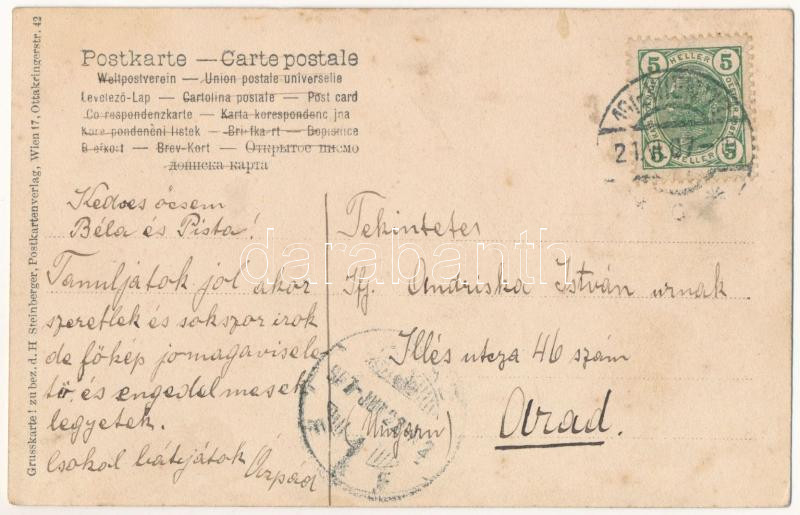 Postkarte — Carte postale
Weltpostverein — Union postale universelle
Levelező-Lap — Cartolina postale — Post card
Correspondenzkarte — Karta korespondencyjna
Korespondenční listek — Briefkaart — Dopisnice
Brefkort — Brev-Kort — Открытое письмо
дописна карта
Grusskarte! zu bez. d. H. Steinberger, Postkartenverlag, Wien 17, Ottakringerstr. 42
5 HELLER 5
5 HELLER 5
21.
07
Kedves öcsém
Béla és Pista!
Tanuljatok jól akor
szeretlek és sokszor irok
de fökép jomagavisele
tö, és engedelmesek
legyetek.
Csokol bátyjátok Árpád
Tekintetes
Ifj. Andriska István urnak
Illés utcza 46 szám
(Ungarn) Arad.
darabanth